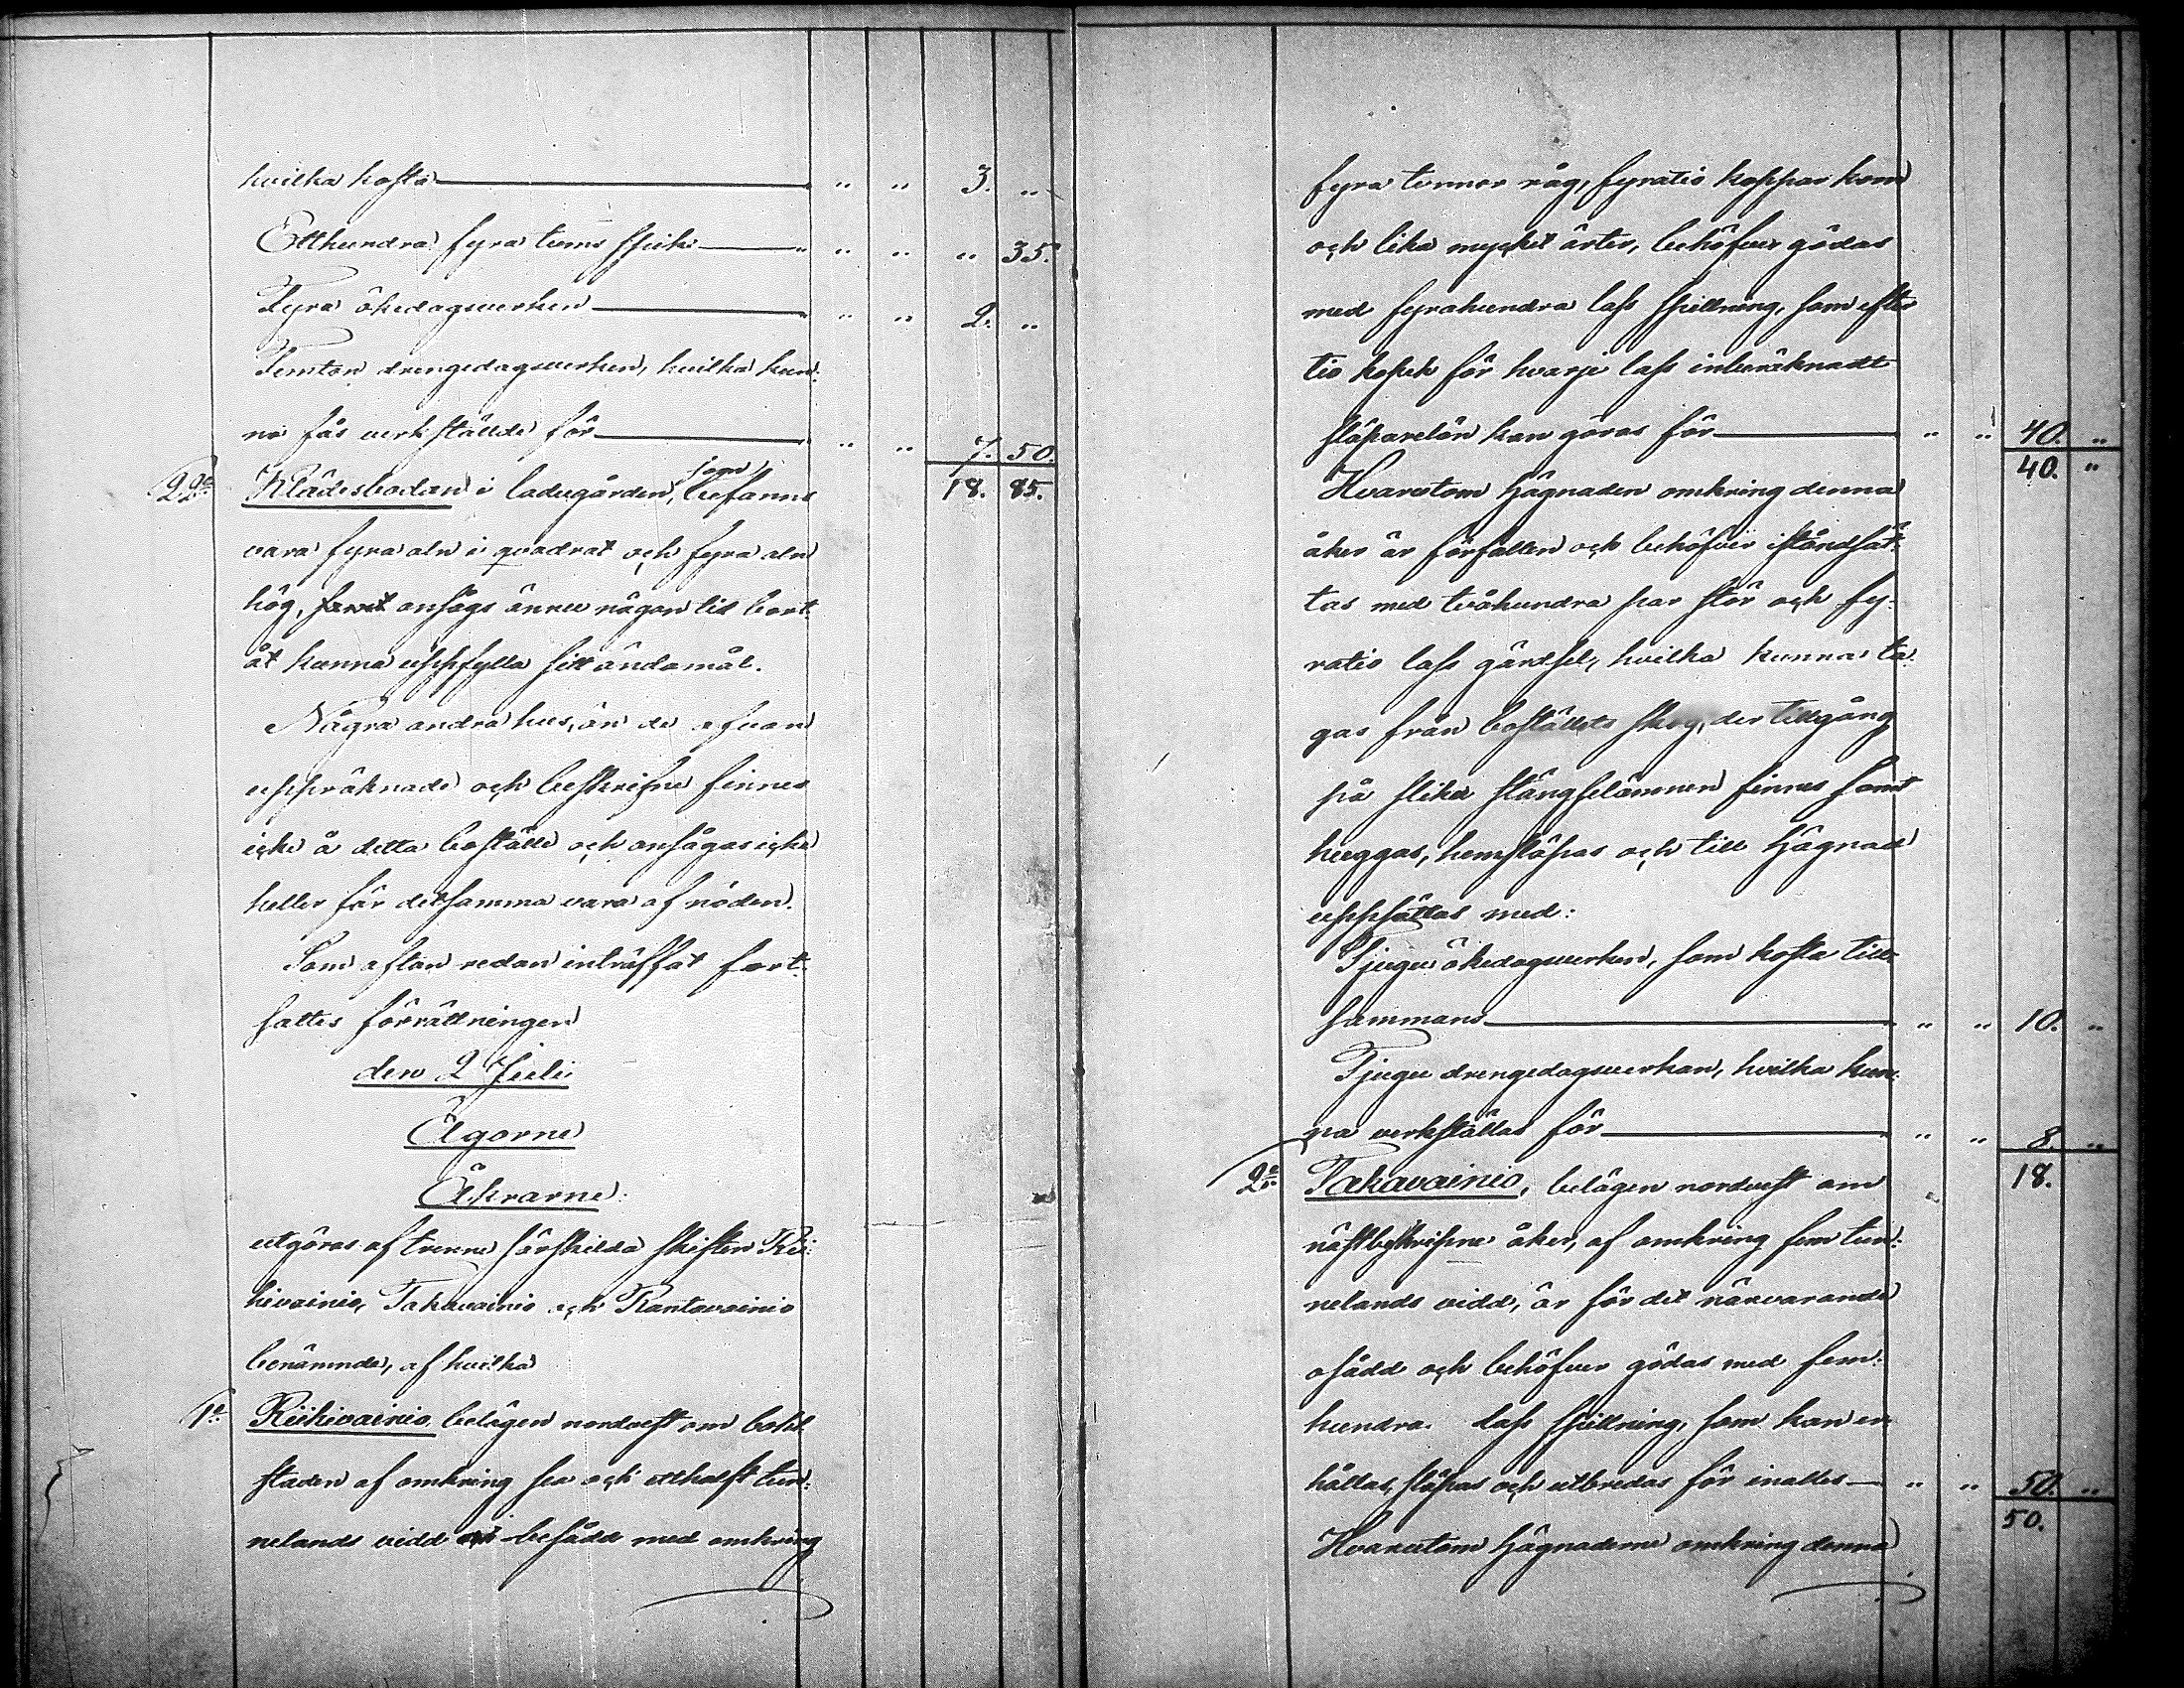 hvilka kosta " " 3. "
Etthundra fyra tums spik " " " 35.
Fyra ökedagsverken " " 2. "
Femton drengedagsverken, hvilka kun-
na fås verkstälde för " " 7. 50.
22o Klädesbodan i ladugården, som befanns 18. 85.
vara fyra aln i qvadrat och fyra aln
hög, ansågs ännu någon tid bort-
åt kunna uppfylla sitt ändamål.
Några andra hus, än de ofvan
uppräknade och beskrifne finnes
icke å detta boställe och ansågas icke
heller för detsamma vara af nöden.
Som aftan redan inträffat fort-
sattes förrättningen
den 2 Juli
Ägorne
Åkrarne:
utgöras af trenne särskilda skiften Rii-
hivainio, Takavainio och Rantavainio
benämnde, af hvilka
1o Riihivainio belägen nordvest om bohl-
staden af omkring sex och etthalft tun-
nelands vidd besådd med omkring
fyra tunnor råg, fyratio kappar korn
och lika mycket ärter, behöfver gödas
med fyrahundra lass spillning, som efter
tio kopek för hvarje lass inberäknadt
släparelön kan göras för " " 40. "
40. "
Hvarutom hägnaden omkring denna
åker är förfallen och behöfver iståndsät-
tas med tvåhundra par stör och fy-
ratio lass gärdsel, hvilka kunna ta-
gas från boställets skog, der tillgång
på slika stängselämnen finnes samt
huggas, hemsläpas och till hägnad
uppsättas med:
Tjugu ökedagsverken, som kosta till-
sammans " " 10. "
Tjugu drengedagsverkan, hvilka kun-
na verkställas för " " 8. "
2o Takavainio, belägen nordvest om 18.
nästbeskrifne åker, af omkring fem tun-
nelands vidd, är för det närvarande
osådd och behöfver gödas med fem-
hundra lass spillning, som kan er-
hållas, släpas och utbredas för inalles " " 50. "
50.
Hvarutom hägnaderne omkring denna